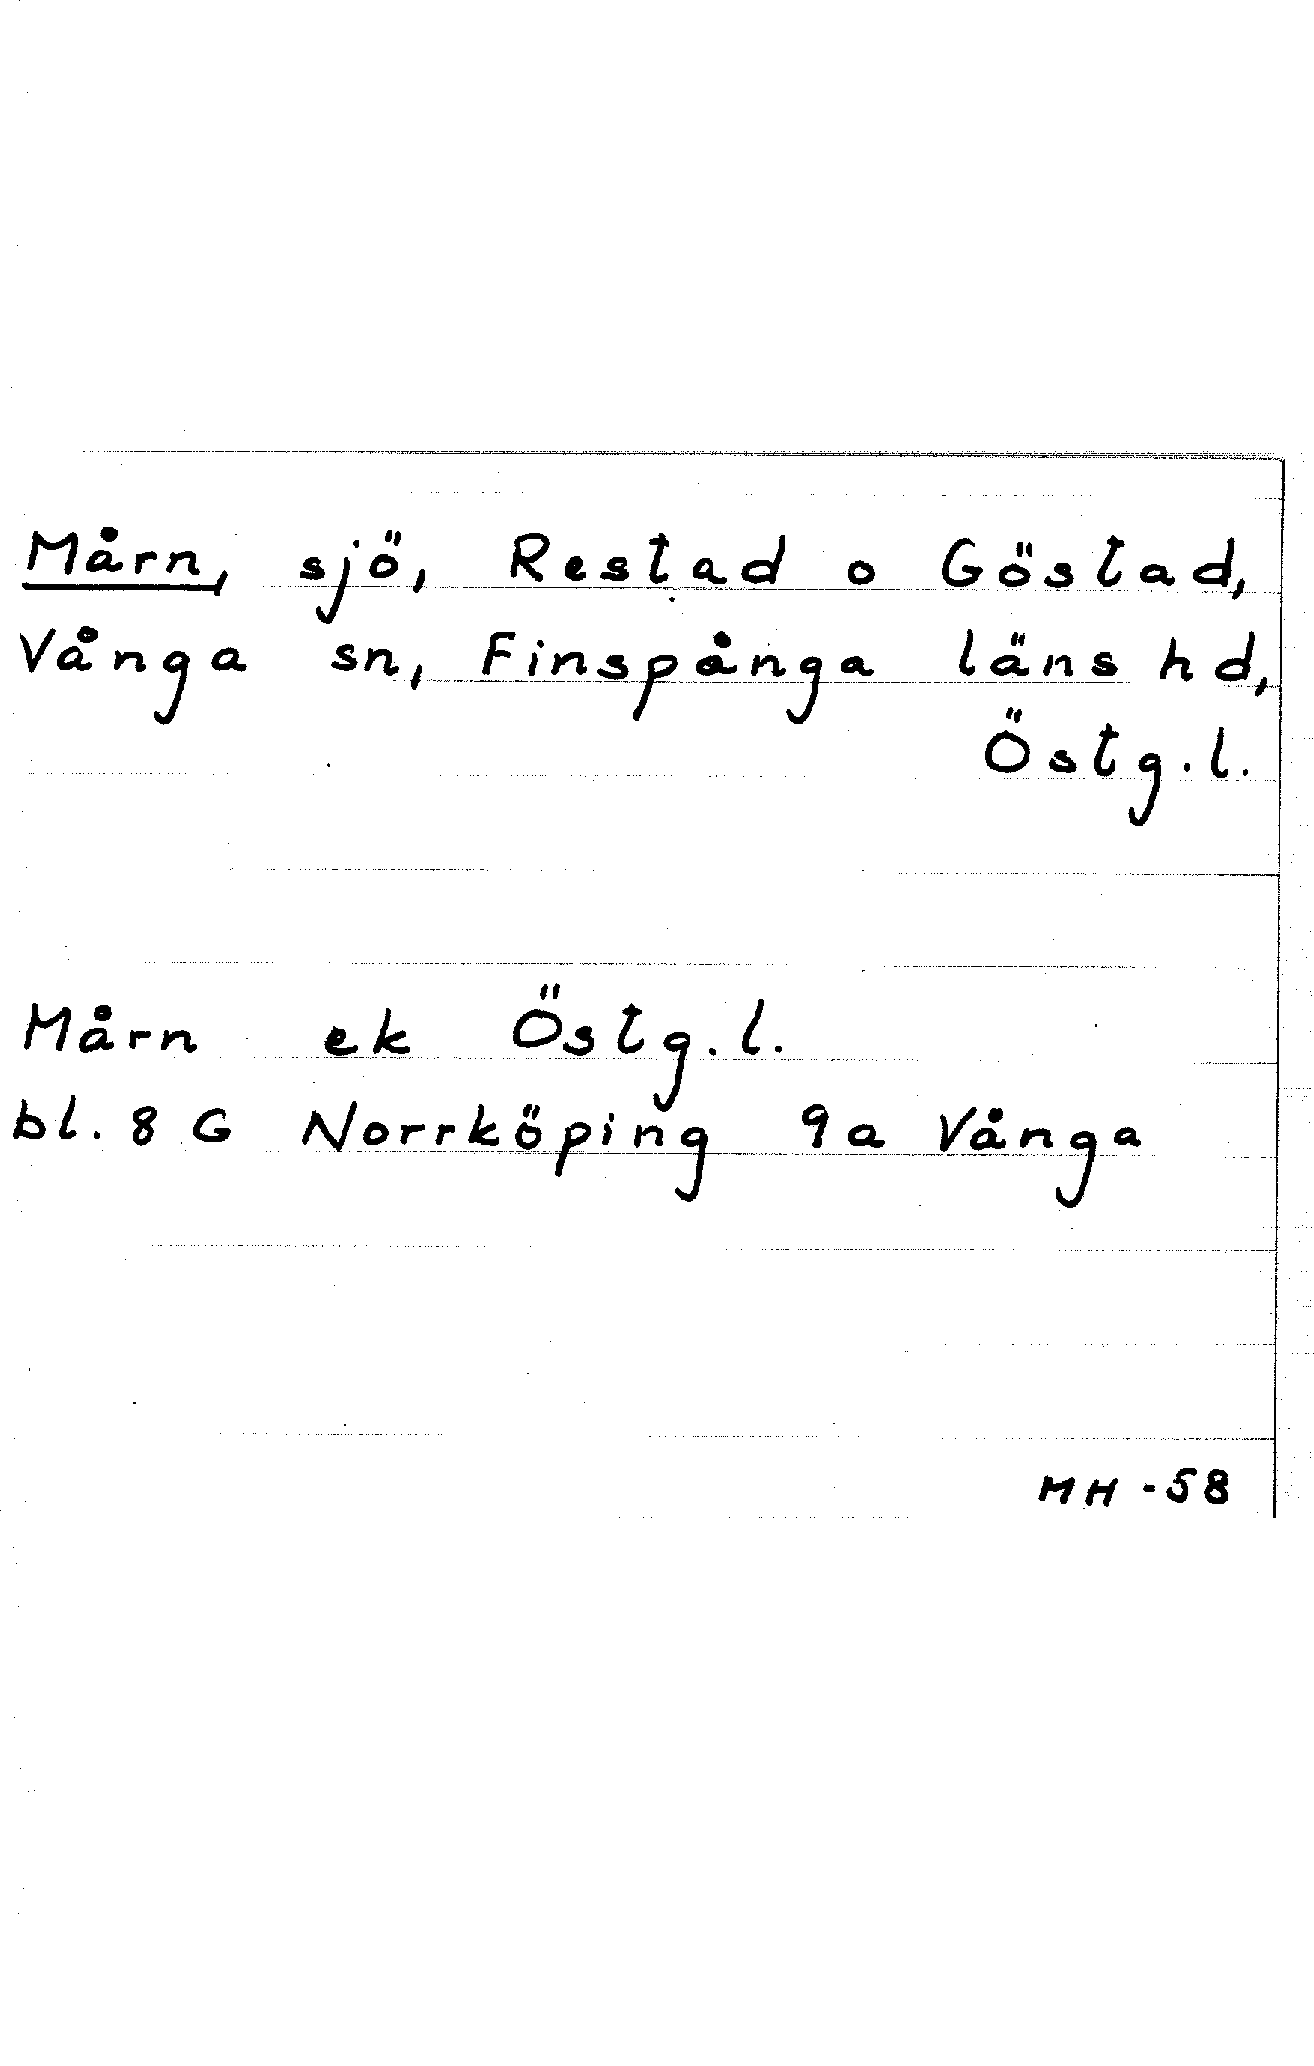 Mårn, sjö, Restad o Göstad,
Vånga sn, Finspånga läns hd,
Östg.l.
Mårn ek Östg.l.
bl. 8 G Norrköping 9a Vånga
MH -58